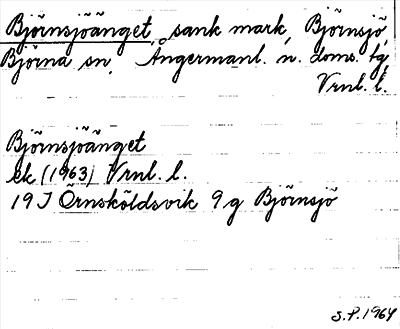 Björnsjöänget, sank mark, Björnsjö,
Björna sn, Ångermanl. n. doms. tg
Vrnl. l.
Björnsjöänget
ek (1963) Vrnl. l.
19 J Örnsköldsvik 9 g Björnsjö
S.P. 1964